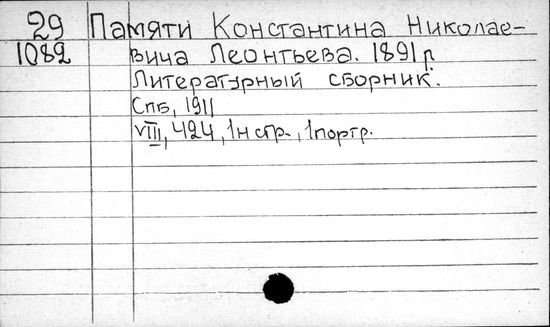 29 Памяти Константина Николае-
1082 вича Леонтьева. 1891 г.
Литературный сборник.
Спб, 1911
VIII, 424, 1н стр., 1 портр.